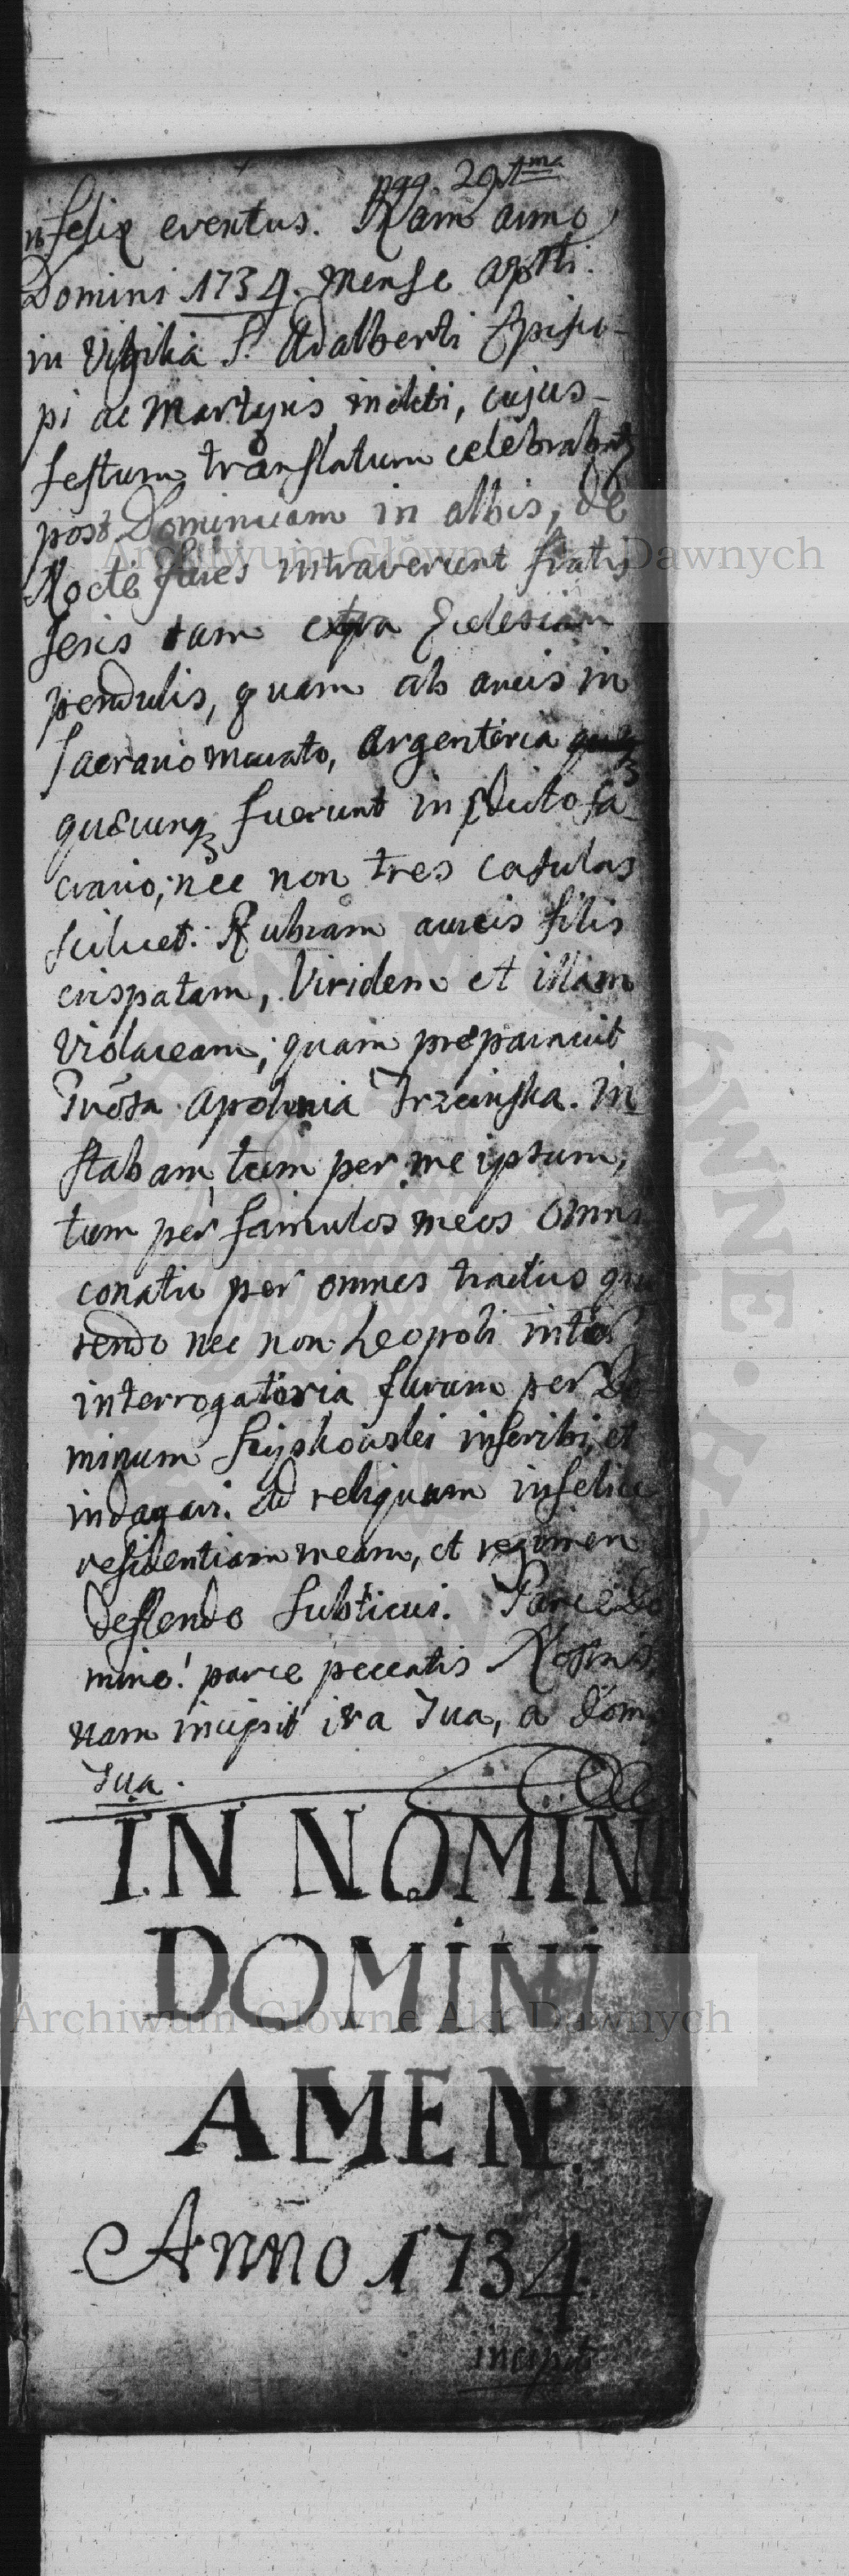 pag. 29tma
infelix eventus. Nam anno
Domini 1734. Mense aprili.
in Vigilia S. Adalberti Episco-
pi ac Martyris inclyti, cujus-
festum translatum celebrabatur
post Dominicam in albis, de
Nocte fures intraverunt fractis
seris tam extra Ecclesiam
pendulis, quam ab arcis in
sacrario murato, argenteria
quæcunq3 fuerunt in dicto sa-
crario, nec non tres casulas
scilicet. Rubram aureis filis
crispatam, Viridem et illam
Violaceam, quam præparavit
Apolonia Trzcinska. In
stabam, tum per me ipsum,
tum per famulos meos omni
conatu per omnes tractus quæ
rendo nec non Leopoli inter
interrogatoria furum per Do
minum inscribi, et
indagari. Ad reliquam infelicem
residentiam meam, et regimen
deflendo subticui. Parce Do
mine! parce peccatis Nostris
nam incipit ira Tua, a domo
Tua.
IN NOMINE
DOMINI
AMEN.
Anno 1734
incipit
Archiwum Główne Akt Dawnych
Archiwum Główne Akt Dawnych